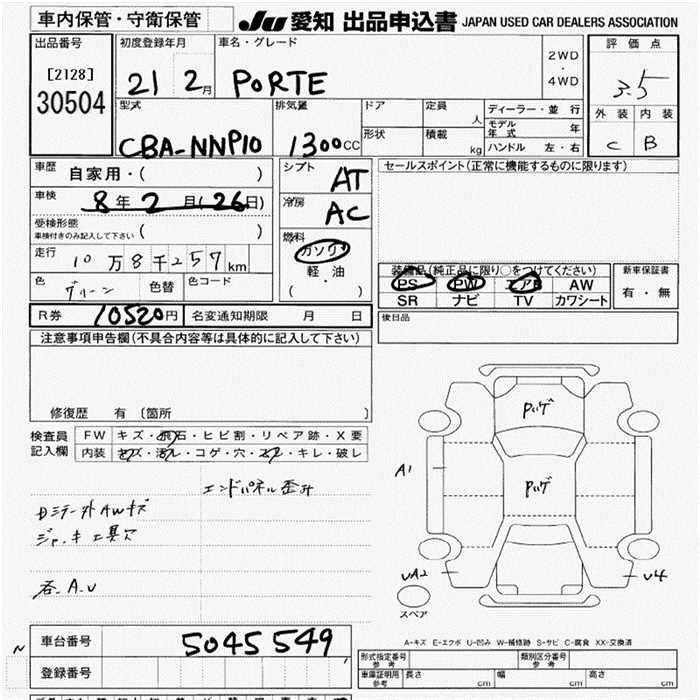 車内保管・守衛保管
JU 愛知 出品申込書 JAPAN USED CAR DEALERS ASSOCIATION
出品番号
[2128]
30504
初度登録年月
21 2月
車名・グレード
PORTE
2WD
・
4WD
評価点
3.5
外装 内装
C B
型式
CBA-NNP10
排気量
1300CC
ドア
形状
定員
人
積載
kg
ディーラー・並行
モデル年式 年
ハンドル 左・右
車歴
自家用・( )
車検
8年2月(26日)
受検形態
車検付きのみ記入して下さい ( )
走行
10万8千257km
色
グリーン
色替
色コード
シフト
AT
冷房
AC
燃料
ガソリン
軽・油
( ・ )
セールスポイント(正常に機能するものに限ります)
装備品(純正品に限り○をつけてください)
PS PW エアB AW
SR ナビ TV カワシート
新車保証書
有・無
R券 10520円 名変通知期限 月 日
後日品
注意事項申告欄(不具合内容等は具体的に記入して下さい)
修復歴 有 〔箇所 〕
検査員
記入欄
FW キズ・飛石・ヒビ割・リペア跡・X要
内装 キズ・汚れ・コゲ・穴・スレ・キレ・破レ
エンドパネル歪み
ジャッキ工具欠
A1
UA2
U4
スペア
A-キズ E-エクボ U-凹み W-補修跡 S-サビ C-腐食 XX-交換済
車台番号 5045549
登録番号
形式指定番号
参考
類別区分番号
参考
車庫証明用
参考
長さ cm 幅 cm 高さ cm